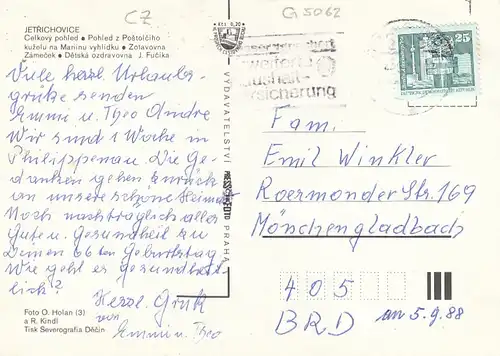 CZ
G 5062
JETŘICHOVICE
Celkový pohled • Pohled z Poštolčího
kuželu na Mariinu vyhlídku • Zotavovna
Zámeček • Dětská ozdravovna J. Fučíka
Kčs 0,20
VYDAVATELSTVÍ PRESSFOTO PRAHA
erweiterte
aushalt-
rsicherung
25
DEUTSCHE DEMOKRATISCHE REPUBLIK
Viele herzl. Urlaubs-
grüße senden
Emmi u. Theo Andre
Wir sind 1 Woche in
Philippenau. Die Ge-
danken gehen zurück
an unsere schöne Heimat
Noch nachträglich alles
Gute u. Gesundheit zu
Deinen 66ten Geburtstag.
Wie geht es gesundheit-
lich?
Herzl. Gruß
von
Emmi u. Theo
Foto O. Holan (3)
a R. Kindl
Tisk Severografia Děčín
Fam.
Emil Winkler
Roermonder Str. 169
Mönchengladbach
405
BRD
am 5.9.88